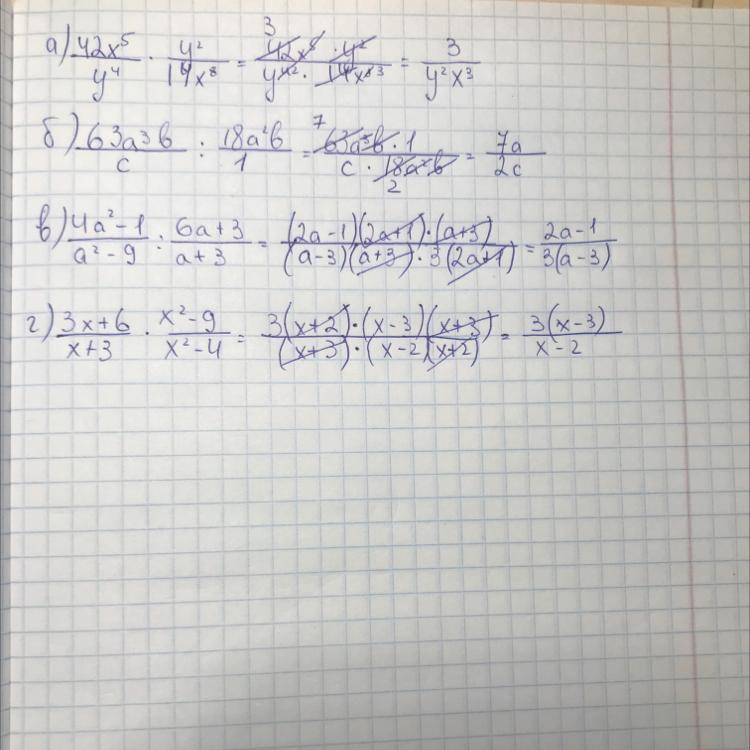 а) 42x⁵/y⁴ · y²/14x⁸ = 42x⁵ · y²/y⁴ · 14x⁸ = 3/y²x³
б) 63a³b/c : 18a²b/1 = 63a³b · 1/c · 18a²b = 7a/2c
в) 4a²-1/a²-9 : 6a+3/a+3 = (2a-1)(2a+1)·(a+3)/(a-3)(a+3)·3(2a+1) = 2a-1/3(a-3)
г) 3x+6/x+3 · x²-9/x²-4 = 3(x+2)·(x-3)(x+3)/(x+3)·(x-2)(x+2) = 3(x-3)/x-2